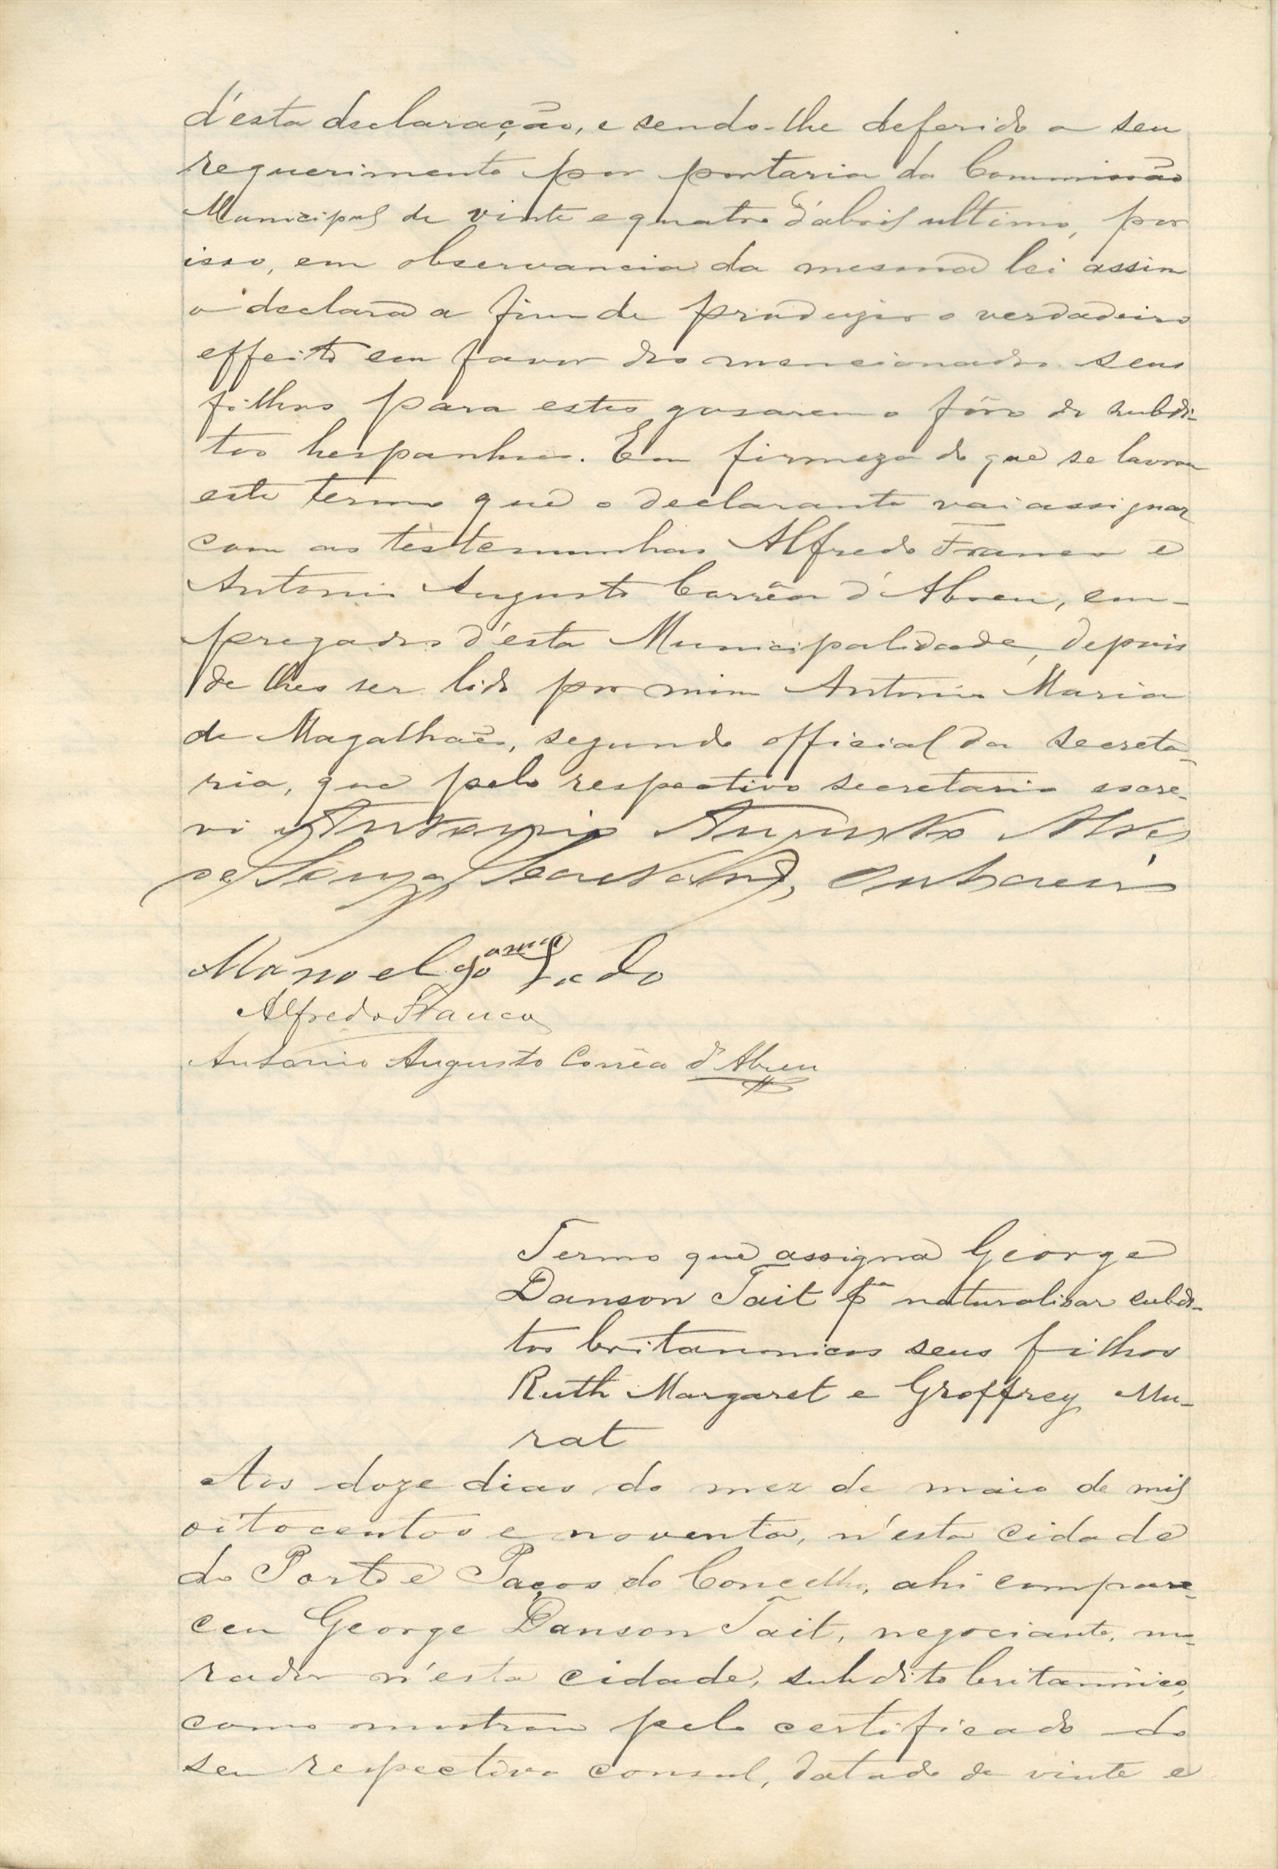 d'esta declaração, e sendo-lhe deferido o seu
requerimento por portaria da Commissão
Municipal de vinte e quatro d'abril ultimo, por
isso, em observancia da mesma lei assim
o declara a fim de produzir o verdadeiro
effeito em favor dos mencionados seus
filhos para estes gosarem o fôro de subdi-
tos hespanhoes. Em firmeza do que se lavrou
este termo que o declarante vai assignar
com as testemunhas Alfredo Franco e
Antonio Augusto Corrêa d'Abreu, em-
pregados d'esta Municipalidade, depois
de lhes ser lido por mim Antonio Maria
de Magalhães, segundo official da secreta-
ria, que pelo respectivo secretario escre-
vi Antonio Augusto Alves
de Souza, Secretario, subscrevi
Manoel Lado
Alfredo Franco
Antonio Augusto Corrêa d'Abreu
Termo que assigna George
Danson Tait pª naturalisar subdi-
tos britannicos seus filhos
Ruth Margaret e Groffrey Mu-
rat
Aos doze dias do mez de maio de mil
oitocentos e noventa, n'esta cidade
do Porto e Paços do Concelho, ahi compare-
ceu George Danson Tait, negociante, mo-
rador n'esta cidade, subdito britannico,
como mostrou pelo certificado do
seu respectivo consul, datado de vinte e